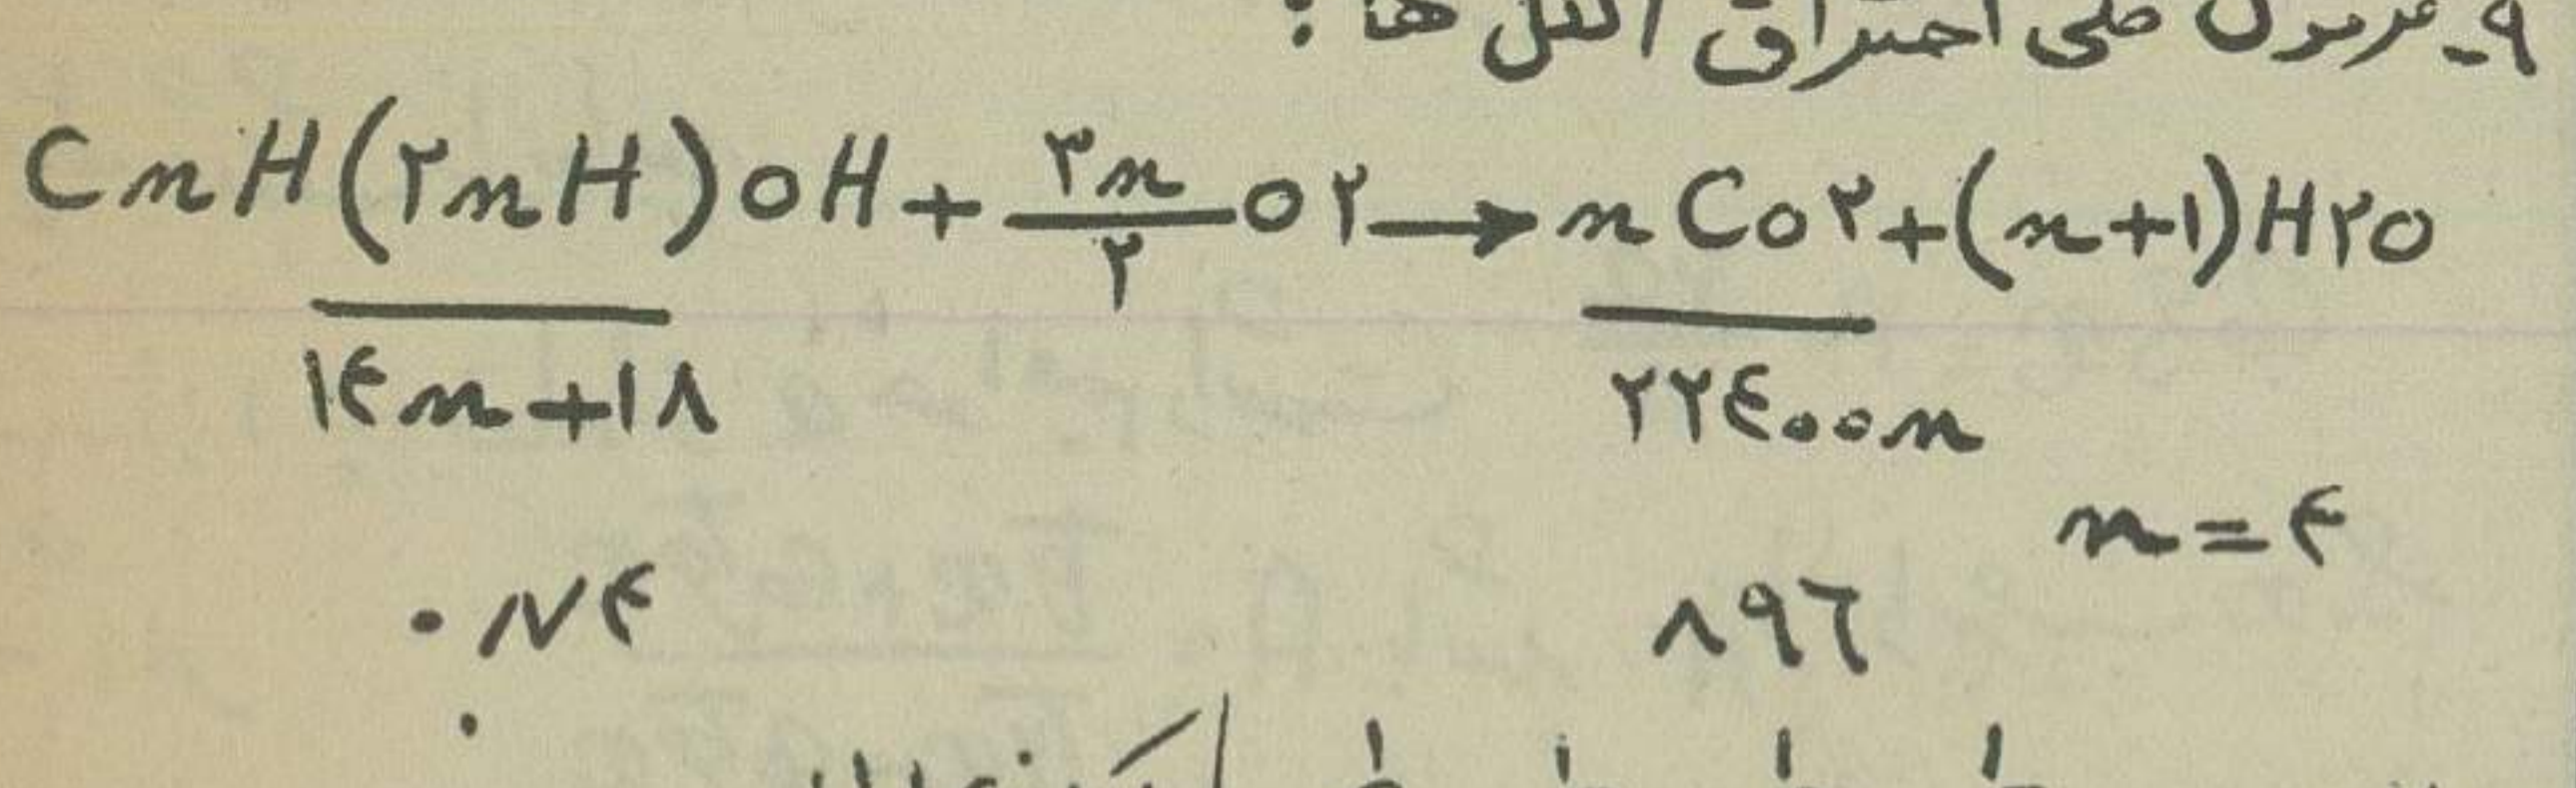 ۹_ فرمول کلی احتراق الکل ها :
CnH(۲nH)OH + ۳n/۲ O۲ → nCO۲ + (n+۱)H۲O
۱۴n+۱۸ ۲۲۴۰۰n
n=۴
۰/۷۴ ۸۹۶